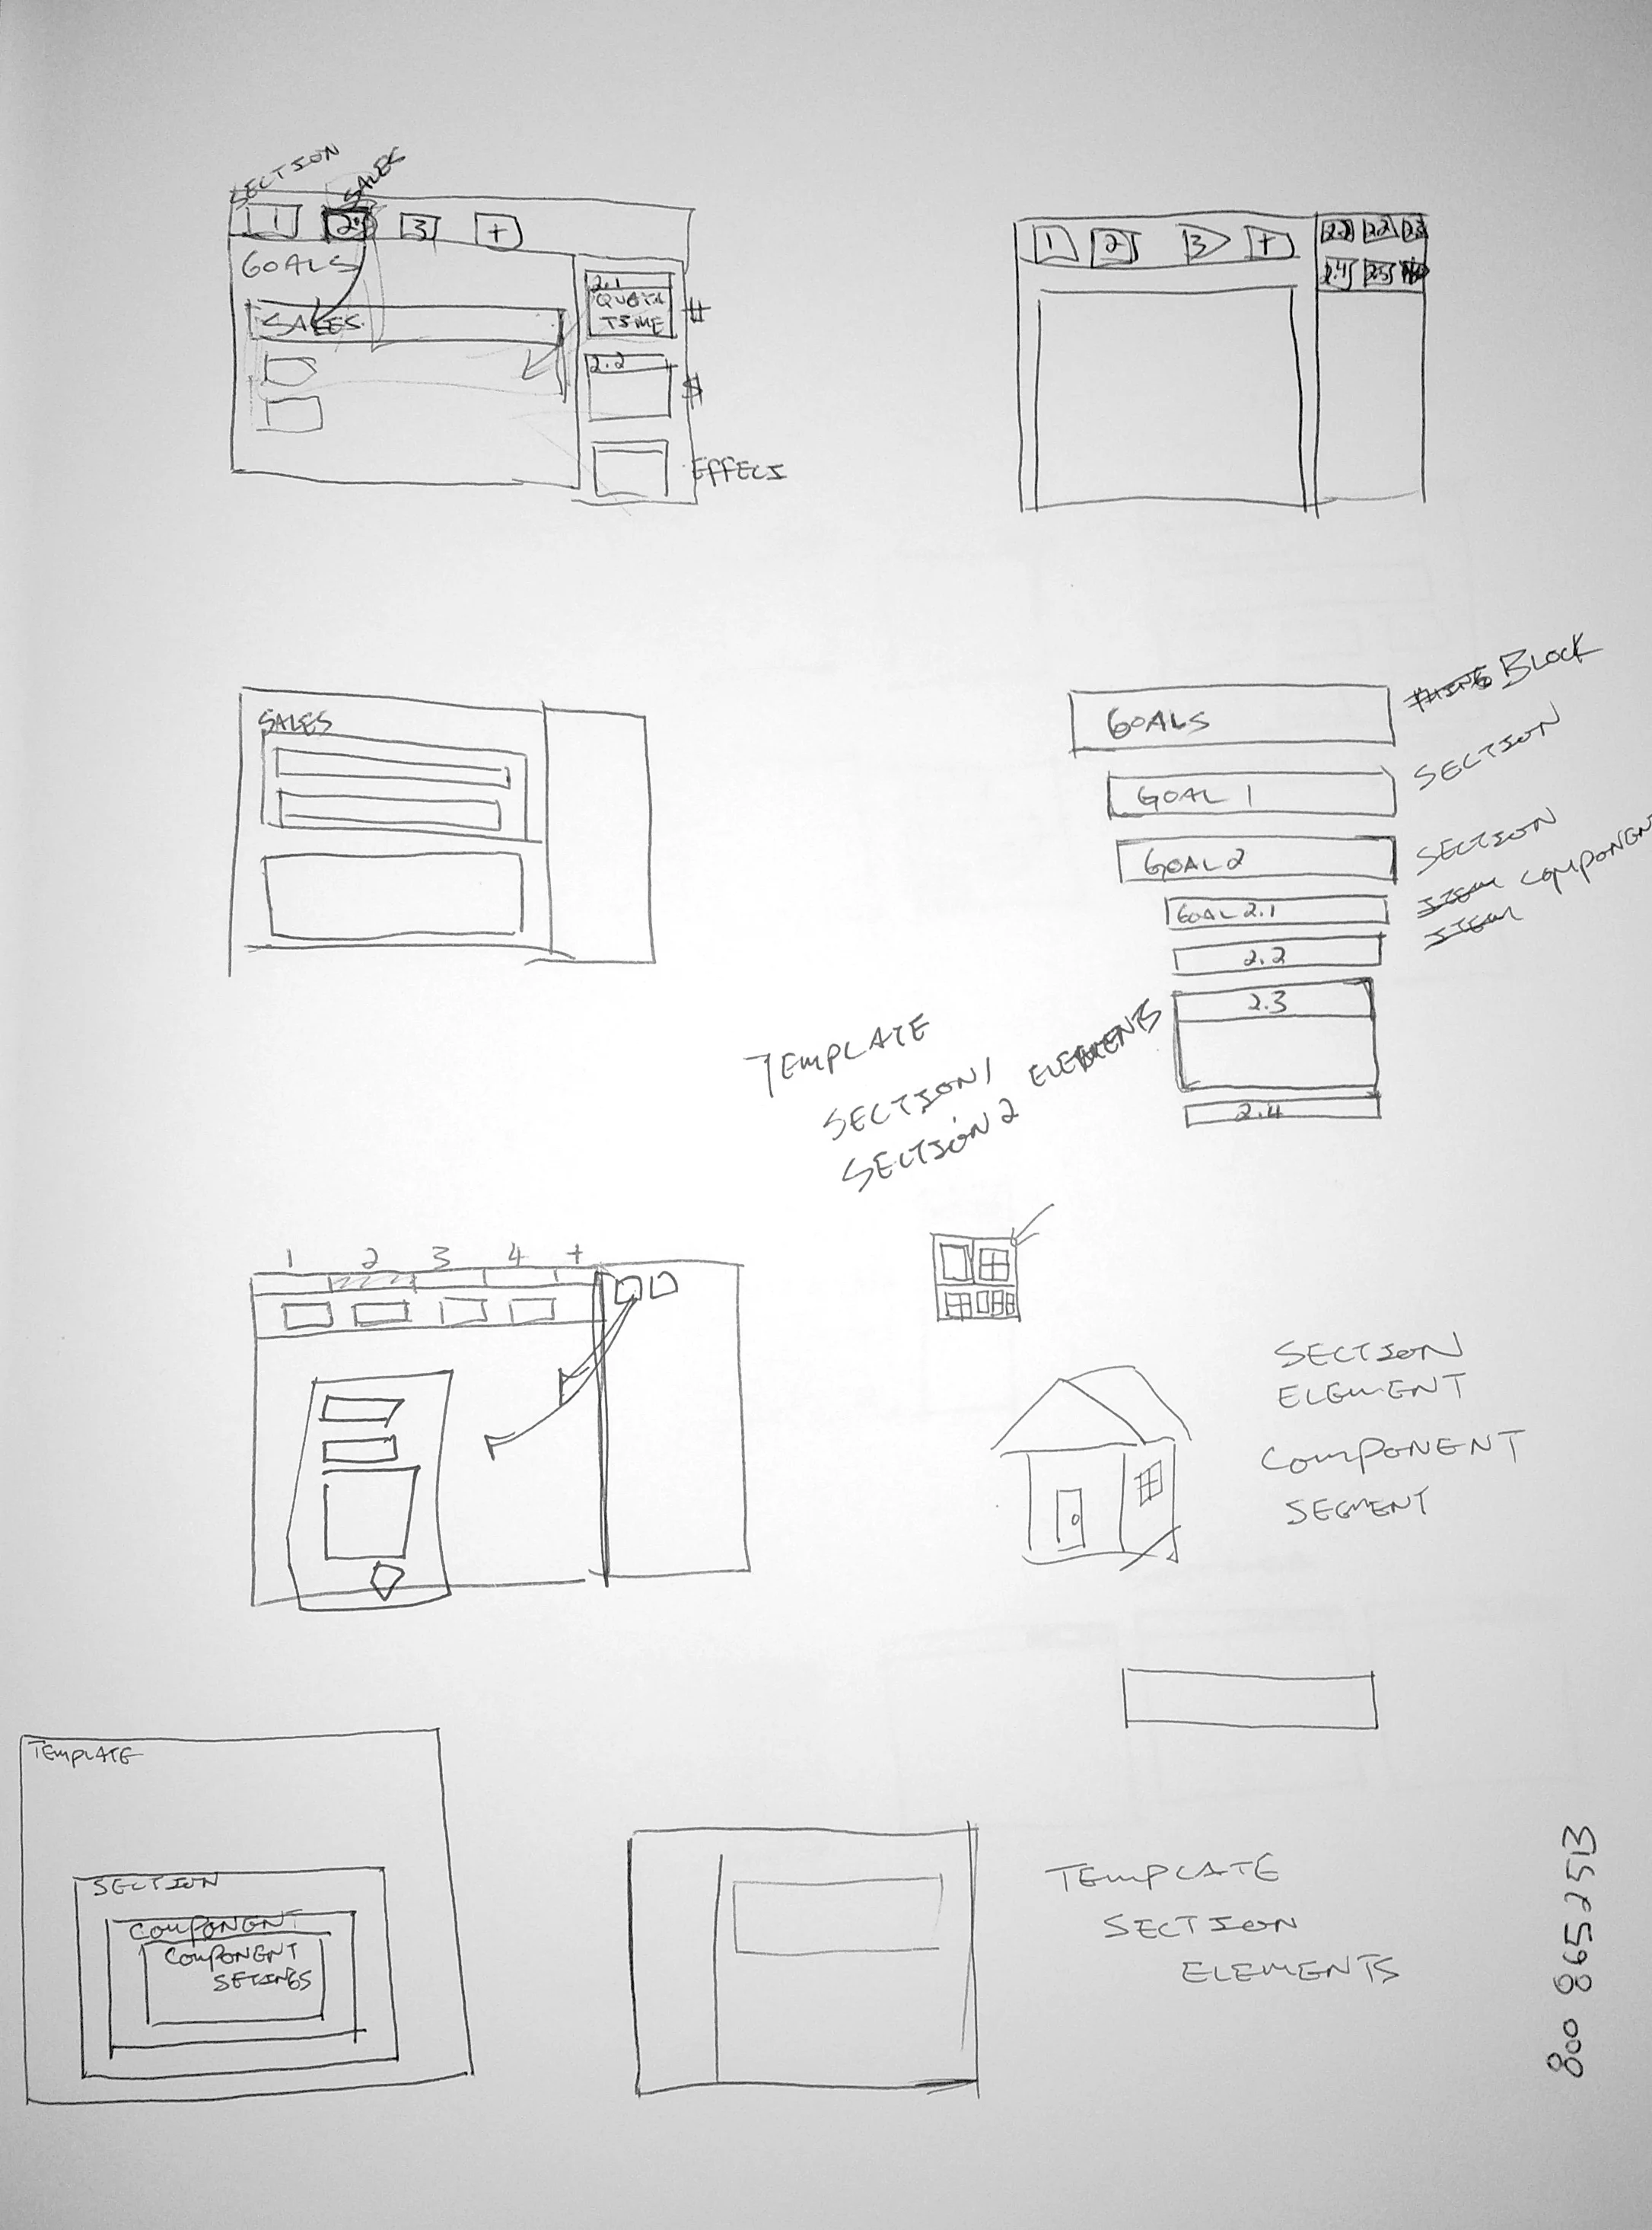 SECTION
SALES
1
2
3
+
GOALS
SALES
2.1
TIME
2.2
EFFECT
1
2
3
+
2.2
2.3
2.4
2.5
SALES
GOALS
BLOCK
GOAL 1
SECTION
GOAL 2
SECTION
GOAL 2.1
ITEM COMPONENT
2.2
ITEM
2.3
2.4
TEMPLATE
SECTION 1
SECTION 2 ELEMENTS
1 2 3 4 +
SECTION
ELEMENT
COMPONENT
SEGMENT
TEMPLATE
SECTION
COMPONENT
COMPONENT
SETINGS
TEMPLATE
SECTION
ELEMENTS